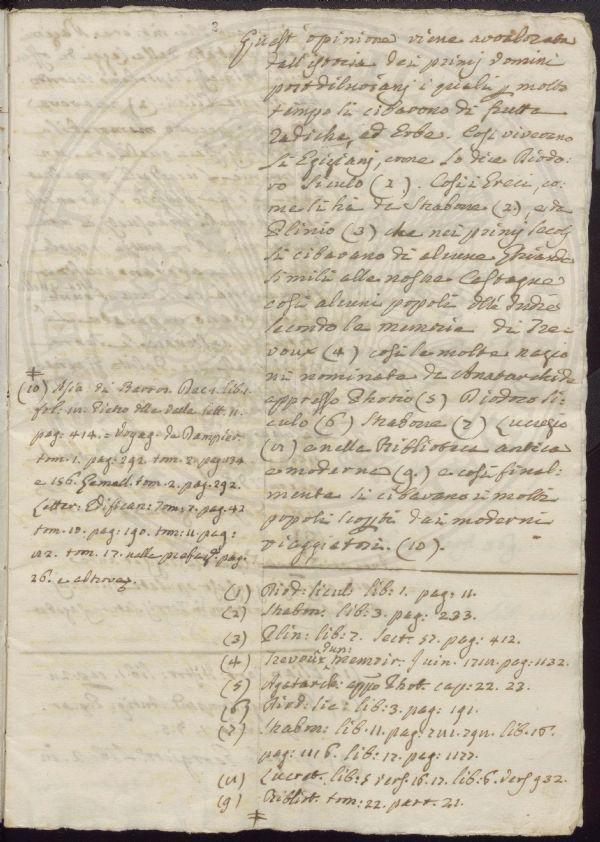 Quest' opinione viene avvalorata
dall'Istoria dei primi Uomini
postdiluviani i quali p molto
tempo si cibavono di frutta
Radiche, ed Erbe. Così vivevano
li Egiziani, come lo dice Diodo-
ro Siculo (2). Così i Greci, co-
me si hà da Strabone (2) e da
Plinio (3) che nei primi secoli
si cibavano di alcune Ghiande
simili alle nostre Castagne
così alcuni popoli dell' Indie
secondo le memorie di Tre-
voux (4) così le molte nazio
ni nominate da Anatarchide
appresso Photio (5) Diodoro Si-
culo (6) Strabone (7) Lucrezio
(8) e nella Biblioteca antica
e moderna (9.) e così final-
mente si cibavano i molti
popoli scop.ti dai moderni
viaggiatori. (10).
‡
(10) Asia di Barros. Dec. 1. lib. 1.
fol. 111. Pietro della Valle lett. 11.
pag: 414. = Voyag. da Dampier.
tom. 1. pag: 292. tom. 2. pag: 134
e 156. Gemell. tom. 2. pag: 292.
Letter: Edifican: Tom: 7. pag: 42
tom. 10. pag: 190. tom: 11. pag:
112. tom. 17. nella prefaz: pag:
26. e altrove.
(1) Diod: Siculo lib: 1. pag: 11.
(2) Strabon: lib: 3. pag: 233.
(3) Plin: lib: 7. Sect. 57. pag: 412.
(4) Trevoux memoir. Juin. 1711. pag: 1132.
(5) Agatarch: appo Phot. cap: 22. 23.
(6) Diod: Sic: lib: 3. pag: 191.
(7) Strabon: lib. 11. pag: 781. 791. lib. 16.
pag: 1116. lib: 17. pag: 1177.
(8) Lucret. lib: 5 vers. 16. 17. lib: 6. vers 932.
(9) Bibliot. tom: 22. part. 21.
‡